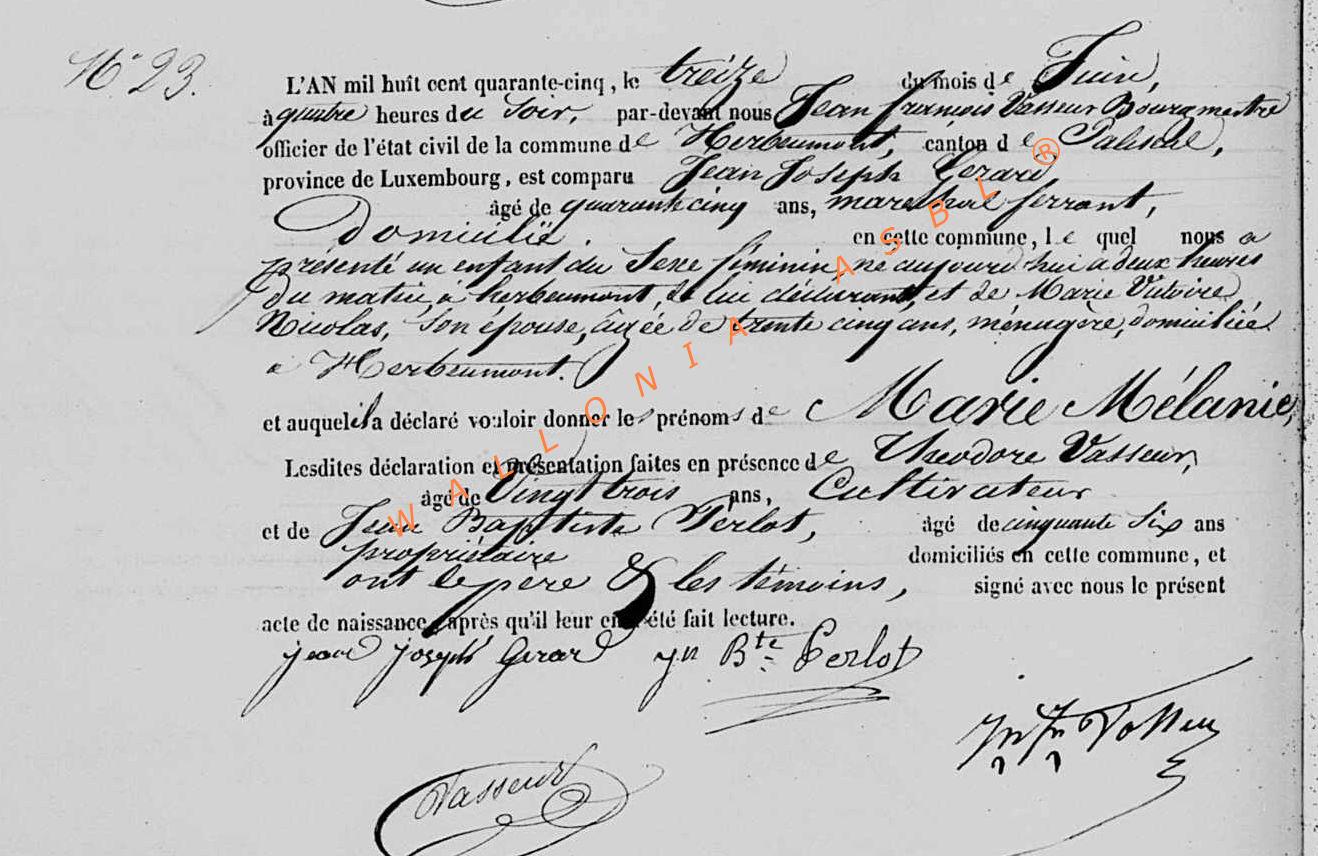 N° 23.
L'AN mil huit cent quarante-cinq, le treize du mois de Juin,
à quatre heures du soir, par-devant nous Jean françois Vasseur Bourgmestre
officier de l'état civil de la commune de Herbeumont, canton de Paliseul,
province de Luxembourg, est comparu Jean Joseph Gerard
âgé de quarante cinq ans, marechal ferrant,
domicilié en cette commune, lequel nous a
présenté un enfant du Sexe féminin, né aujourd'hui a deux heures
du matin, à herbeumont, de lui déclarant, et de Marie Victoire
Nicolas, son épouse, âgée de trente cinq ans, ménagère, domiciliée
a Herbeumont.
et auquel il a déclaré vouloir donner les prénoms de Marie Mélanie,
Lesdites déclaration et présentation faites en présence de Théodore Vasseur,
âgé de vingt trois ans, Cultivateur
et de Jean Baptiste Perlot, âgé de cinquante six ans
propriétaire domiciliés en cette commune, et
ont le père & les témoins, signé avec nous le présent
acte de naissance, après qu'il leur en a été fait lecture.
jean joseph Gerard jn Bte Perlot
jn fn Vasseur
Vasseur
WALLONIA ASBL ®